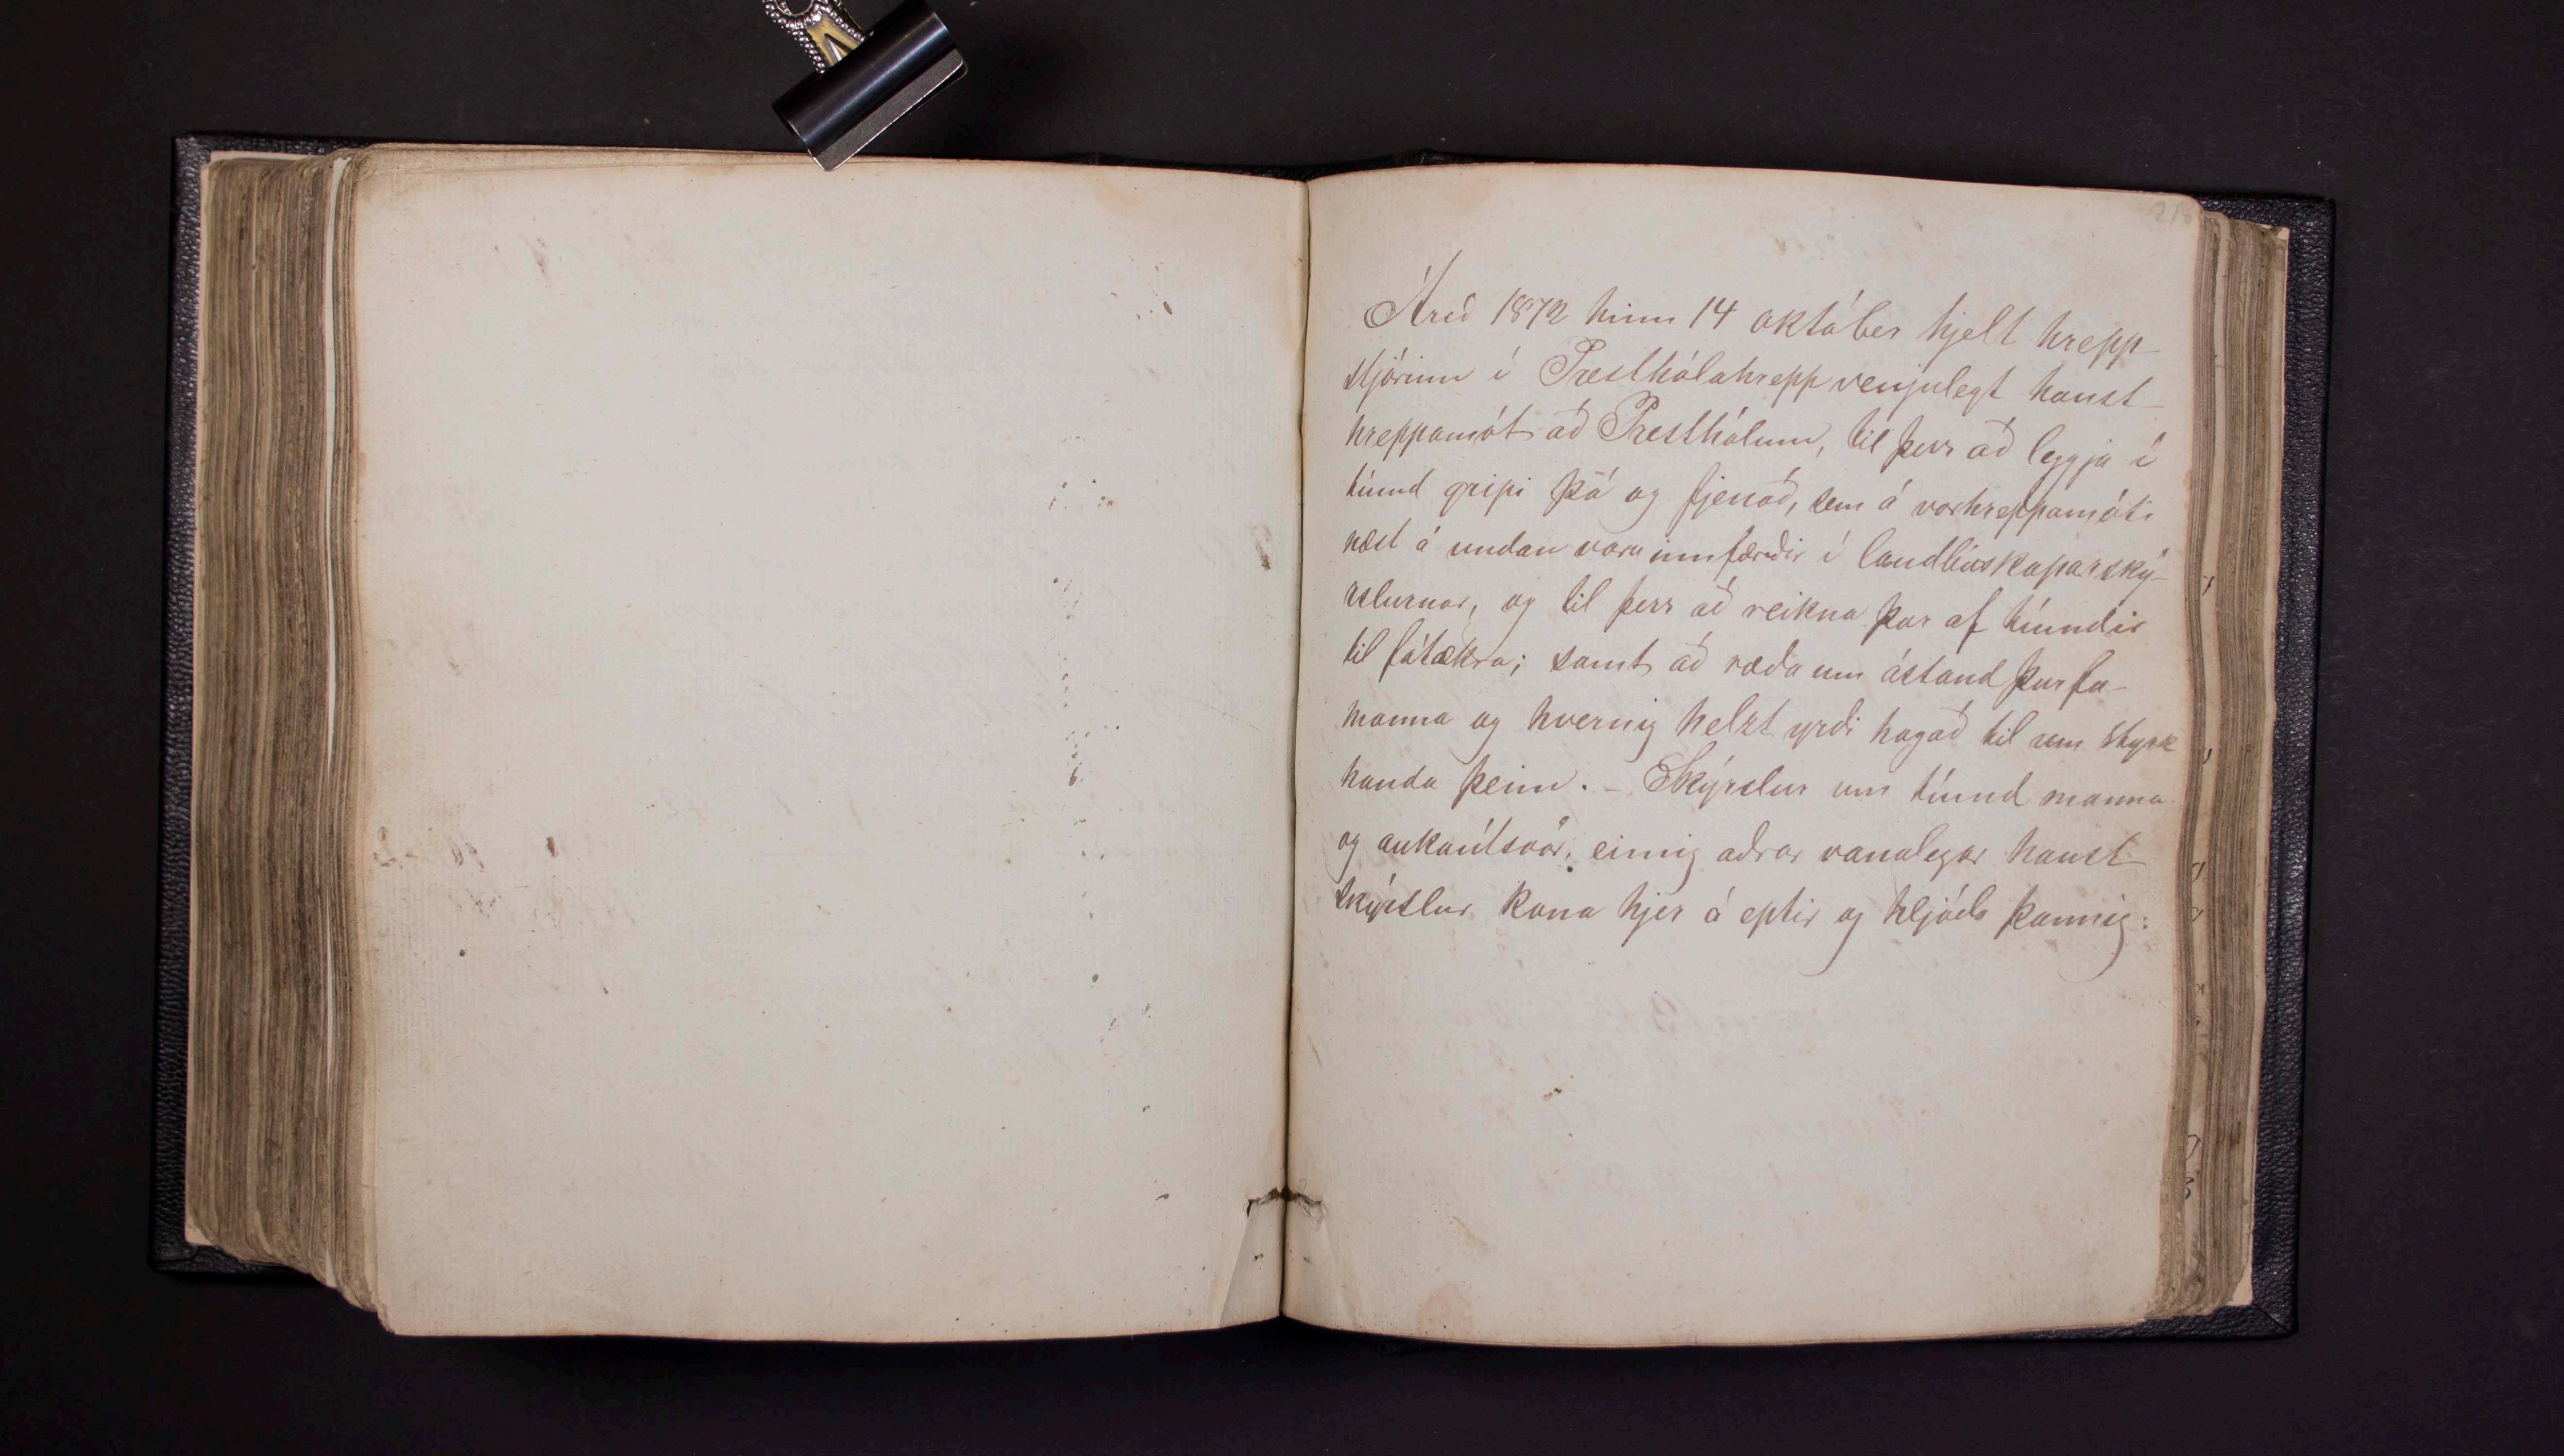 Árið 1872 hinn 14 október hjelt hrepp-
stjórinn í Presthólahrepp venjulegt haust-
hreppamót að Presthólum, til þess að leggja í
tíund gripi þá og fjenað, sem á vorhreppamóti
næst á undan voru innfærðir í landbúskaparský-
rslurnar, og til þess að reikna þar af tíundir
til fátækra; samt að ræða um ástand þurfa-
manna og hvernig helzt yrði hagað til um styrk
handa þeim. - Skýrslur um tíund manna
og aukaútsvör, einnig aðrar vanalegar haust-
skýrslur koma hjer á eptir og hljóða þannig: